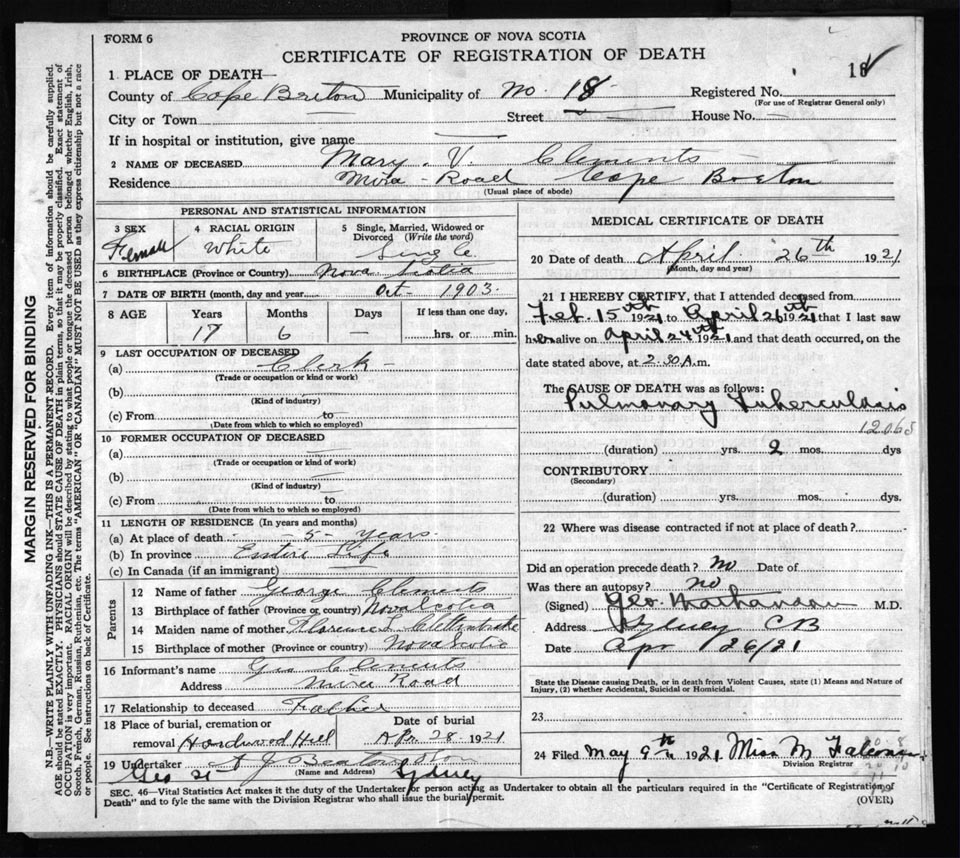 FORM 6
PROVINCE OF NOVA SCOTIA
CERTIFICATE OF REGISTRATION OF DEATH
18
1 PLACE OF DEATH—
County of Cape Breton Municipality of No. 18 Registered No.
(For use of Registrar General only)
City or Town — Street — House No. —
If in hospital or institution, give name —
2 NAME OF DECEASED Mary V. Clements
Residence Mira Road Cape Breton
(Usual place of abode)
PERSONAL AND STATISTICAL INFORMATION
3 SEX Female
4 RACIAL ORIGIN White
5 Single, Married, Widowed or Divorced (Write the word) Single
6 BIRTHPLACE (Province or Country) Nova Scotia
7 DATE OF BIRTH (month, day and year Oct- 1903.
8 AGE Years Months Days If less than one day,
17 6 — hrs. or min.
9 LAST OCCUPATION OF DECEASED
(a) Clerk -
(Trade or occupation or kind or work)
(b)
(Kind of industry)
(c) From to
(Date from which to which so employed)
10 FORMER OCCUPATION OF DECEASED
(a)
(Trade or occupation or kind or work)
(b)
(Kind of industry)
(c) From to
(Date from which to which so employed)
11 LENGTH OF RESIDENCE (In years and months)
(a) At place of death - 5- years.
(b) In province Entire Life
(c) In Canada (if an immigrant) —
Parents
12 Name of father George Clements
13 Birthplace of father (Province or country) Nova Scotia
14 Maiden name of mother Florence L.
15 Birthplace of mother (Province or country) Nova Scotia
16 Informant's name Geo Clements
Address Mira Road
17 Relationship to deceased Father
18 Place of burial, cremation or removal Hardwood Hill
Date of burial Apr 28 1921
19 Undertaker A J Beaton & Son
(Name and Address)
Geo St Sydney
MEDICAL CERTIFICATE OF DEATH
20 Date of death April 26th 1921
(Month, day and year)
21 I HEREBY CERTIFY, that I attended deceased from
Feb 15th 1921 to April 26th 1921 that I last saw
her alive on April 24th 1921 and that death occurred, on the
date stated above, at 2.30 A.m.
The CAUSE OF DEATH was as follows:
Pulmonary Tuberculosis
(duration) yrs. 2 mos. dys
CONTRIBUTORY
(Secondary)
(duration) yrs. mos. dys.
22 Where was disease contracted if not at place of death?
Did an operation precede death? No Date of
Was there an autopsy? no
(Signed) Geo. M.D.
Address Sydney CB
Date Apr 26/21
State the Disease causing Death, or in death from Violent Causes, state (1) Means and Nature of
Injury, (2) whether Accidental, Suicidal or Homicidal.
23
24 Filed May 9th 1921 Miss M
Division Registrar
SEC. 46—Vital Statistics Act makes it the duty of the Undertaker or person acting as Undertaker to obtain all the particulars required in the "Certificate of Registration of
Death" and to fyle the same with the Division Registrar who shall issue the burial permit.
(OVER)
MARGIN RESERVED FOR BINDING
N.B.—WRITE PLAINLY WITH UNFADING INK—THIS IS A PERMANENT RECORD. Every item of information should be carefully supplied.
AGE should be stated EXACTLY. PHYSICIANS should STATE CAUSE OF DEATH in plain terms, so that it may be properly classified. Exact statement of
OCCUPATION is very important. RACIAL ORIGIN will be described by stating to what people or tongue the deceased person belonged whether English, Irish,
Scotch, French, German, Russian, Ruthenian, etc. The terms "AMERICAN" OR "CANADIAN" MUST NOT BE USED as they express citizenship but not a race
or people. See instructions on back of Certificate.